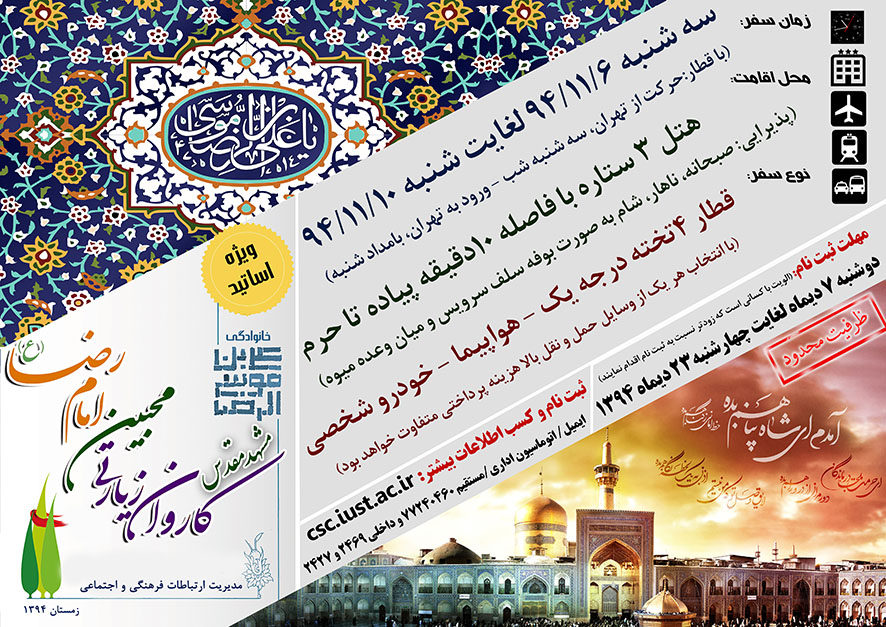 یا علی بن موسی الرضا
زمان سفر:
سه شنبه ۹۴/۱۱/۶ لغایت شنبه ۹۴/۱۱/۱۰
(با قطار:حرکت از تهران، سه شنبه شب - ورود به تهران، بامداد شنبه)
محل اقامت:
هتل ۳ ستاره با فاصله ۱۰ دقیقه پیاده تا حرم
(پذیرایی: صبحانه، ناهار، شام به صورت بوفه سلف سرویس و میان وعده میوه)
نوع سفر:
قطار ۴ تخته درجه یک - هواپیما - خودرو شخصی
(با انتخاب هر یک از وسایل حمل و نقل بالا هزینه پرداختی متفاوت خواهد بود)
مهلت ثبت نام: (الویت با کسانی است که زودتر نسبت به ثبت نام اقدام نمایند)
دوشنبه ۷ دیماه لغایت چهارشنبه ۲۳ دیماه ۱۳۹۴
ظرفیت محدود
ثبت نام و کسب اطلاعات بیشتر:
ایمیل / اتوماسیون اداری / مستقیم ۷۷۲۴۰۴۶۰ و داخلی ۲۴۶۹ و ۲۴۲۷
csc.iust.ac.ir
ویژه
اساتید
خانوادگی
علی بن
موسی
الرضا
کاروان زیارتی
محبین
امام
رضا (ع)
مشهد مقدس
مدیریت ارتباطات فرهنگی و اجتماعی
زمستان ۱۳۹۴
آمدم ای شاه پناهم بده